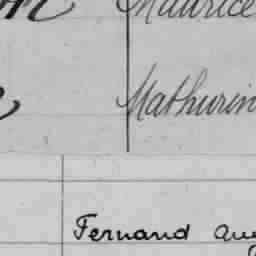 Maurice
Mathurin
Fernand Aug